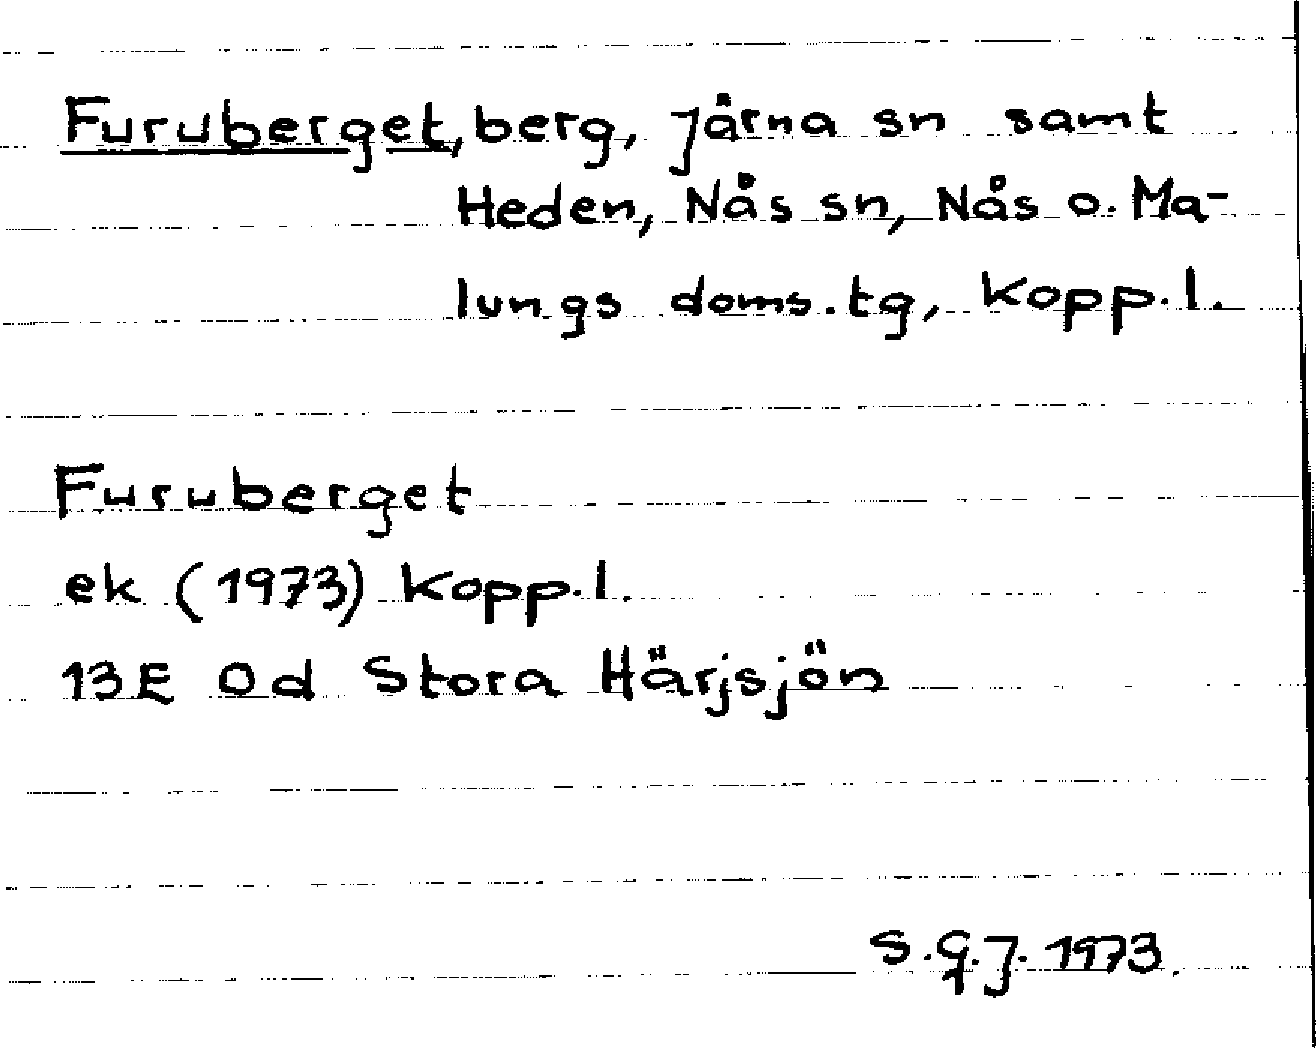 Furuberget, berg, Järna sn samt
Heden, Nås sn, Nås o. Ma-
lungs doms.tg, Kopp.l.
Furuberget
ek (1973) Kopp.l.
13E 0d Stora Härjsjön
S.G.J. 1973.